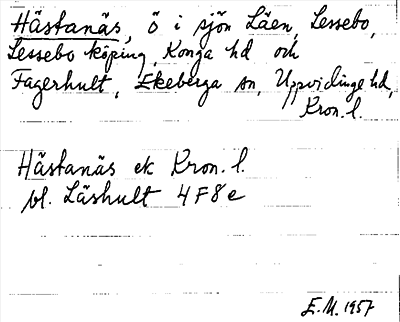 Hästanäs, ö i sjön Läen, Lessebo,
Lessebo köping, Konga hd och
Fagerhult, Ekeberga sn, Uppvidinge hd,
Kron. l.
Hästanäs ek Kron. l.
bl. Läshult 4F8e
E.M. 1957